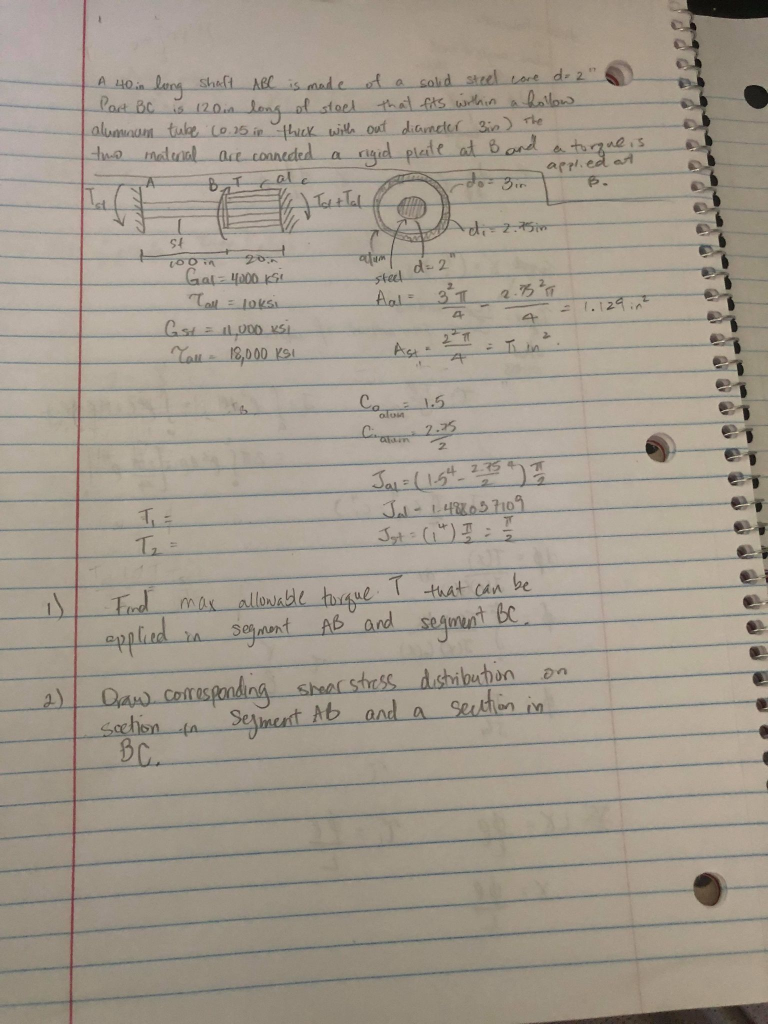 A 40in long shaft ABC is made of a solid steel core d=2"
Part BC is 120in long of steel that fits within a hollow
aluminum tube (0.25 in thick with out diameter 3in) The
two material are connected a rigid plate at B and a torque is
applied at
B.
A B T al c
Tst Tst + Tal
st
100 in 20in
do = 3in
di = 2.75in
alum
steel d=2"
Gal = 4000 ksi
Tall = 10ksi
Gst = 11,000 ksi
Tall = 18,000 ksi
Aal = 3²π/4 - 2.75²π/4 = 1.129in²
Ast = 2²π/4 = π in².
Co alum = 1.5
Ci alum = 2.75/2
Jal = (1.5⁴ - 2.75/2 ⁴) π/2
Jal = 1.488037109
Jst = (1⁴) π/2 = π/2
T₁ =
T₂ =
1) Find max allowable torque T that can be
applied in segment AB and segment BC.
2) Draw corresponding shear stress distribution on
section in segment AB and a section in
BC.